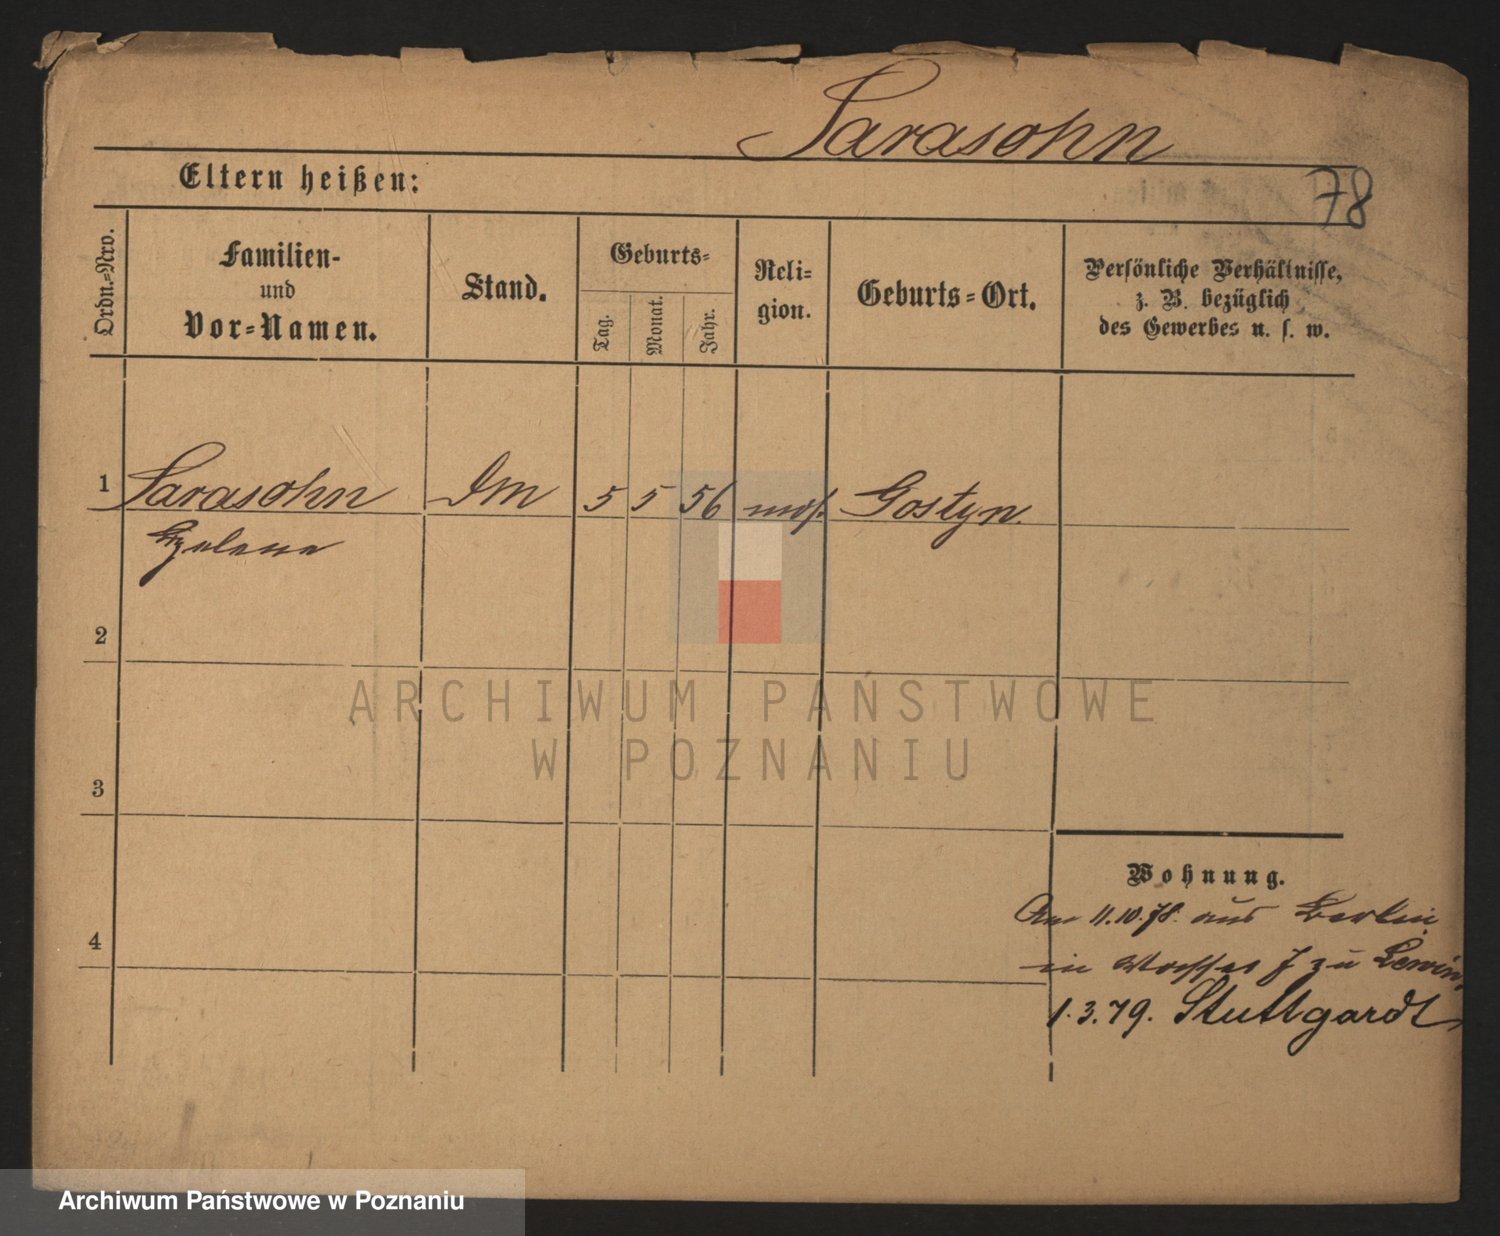 Sarasohn
Eltern heißen:
78
Ordn.-Nro.
Familien-
und
Vor-Namen.
Stand.
Geburts-
Tag.
Monat.
Jahr.
Reli-
gion.
Geburts-Ort.
Persönliche Verhältnisse,
z. B. bezüglich
des Gewerbes u. s. w.
1 Sarasohn 5 5 56 mos. Gostyn.
Helene
2
3
4
ARCHIWUM PAŃSTWOWE
W POZNANIU
Wohnung.
Am 11.10.78. aus Berlin
in zu Lewin,
1.3.79. Stuttgardt
Archiwum Państwowe w Poznaniu